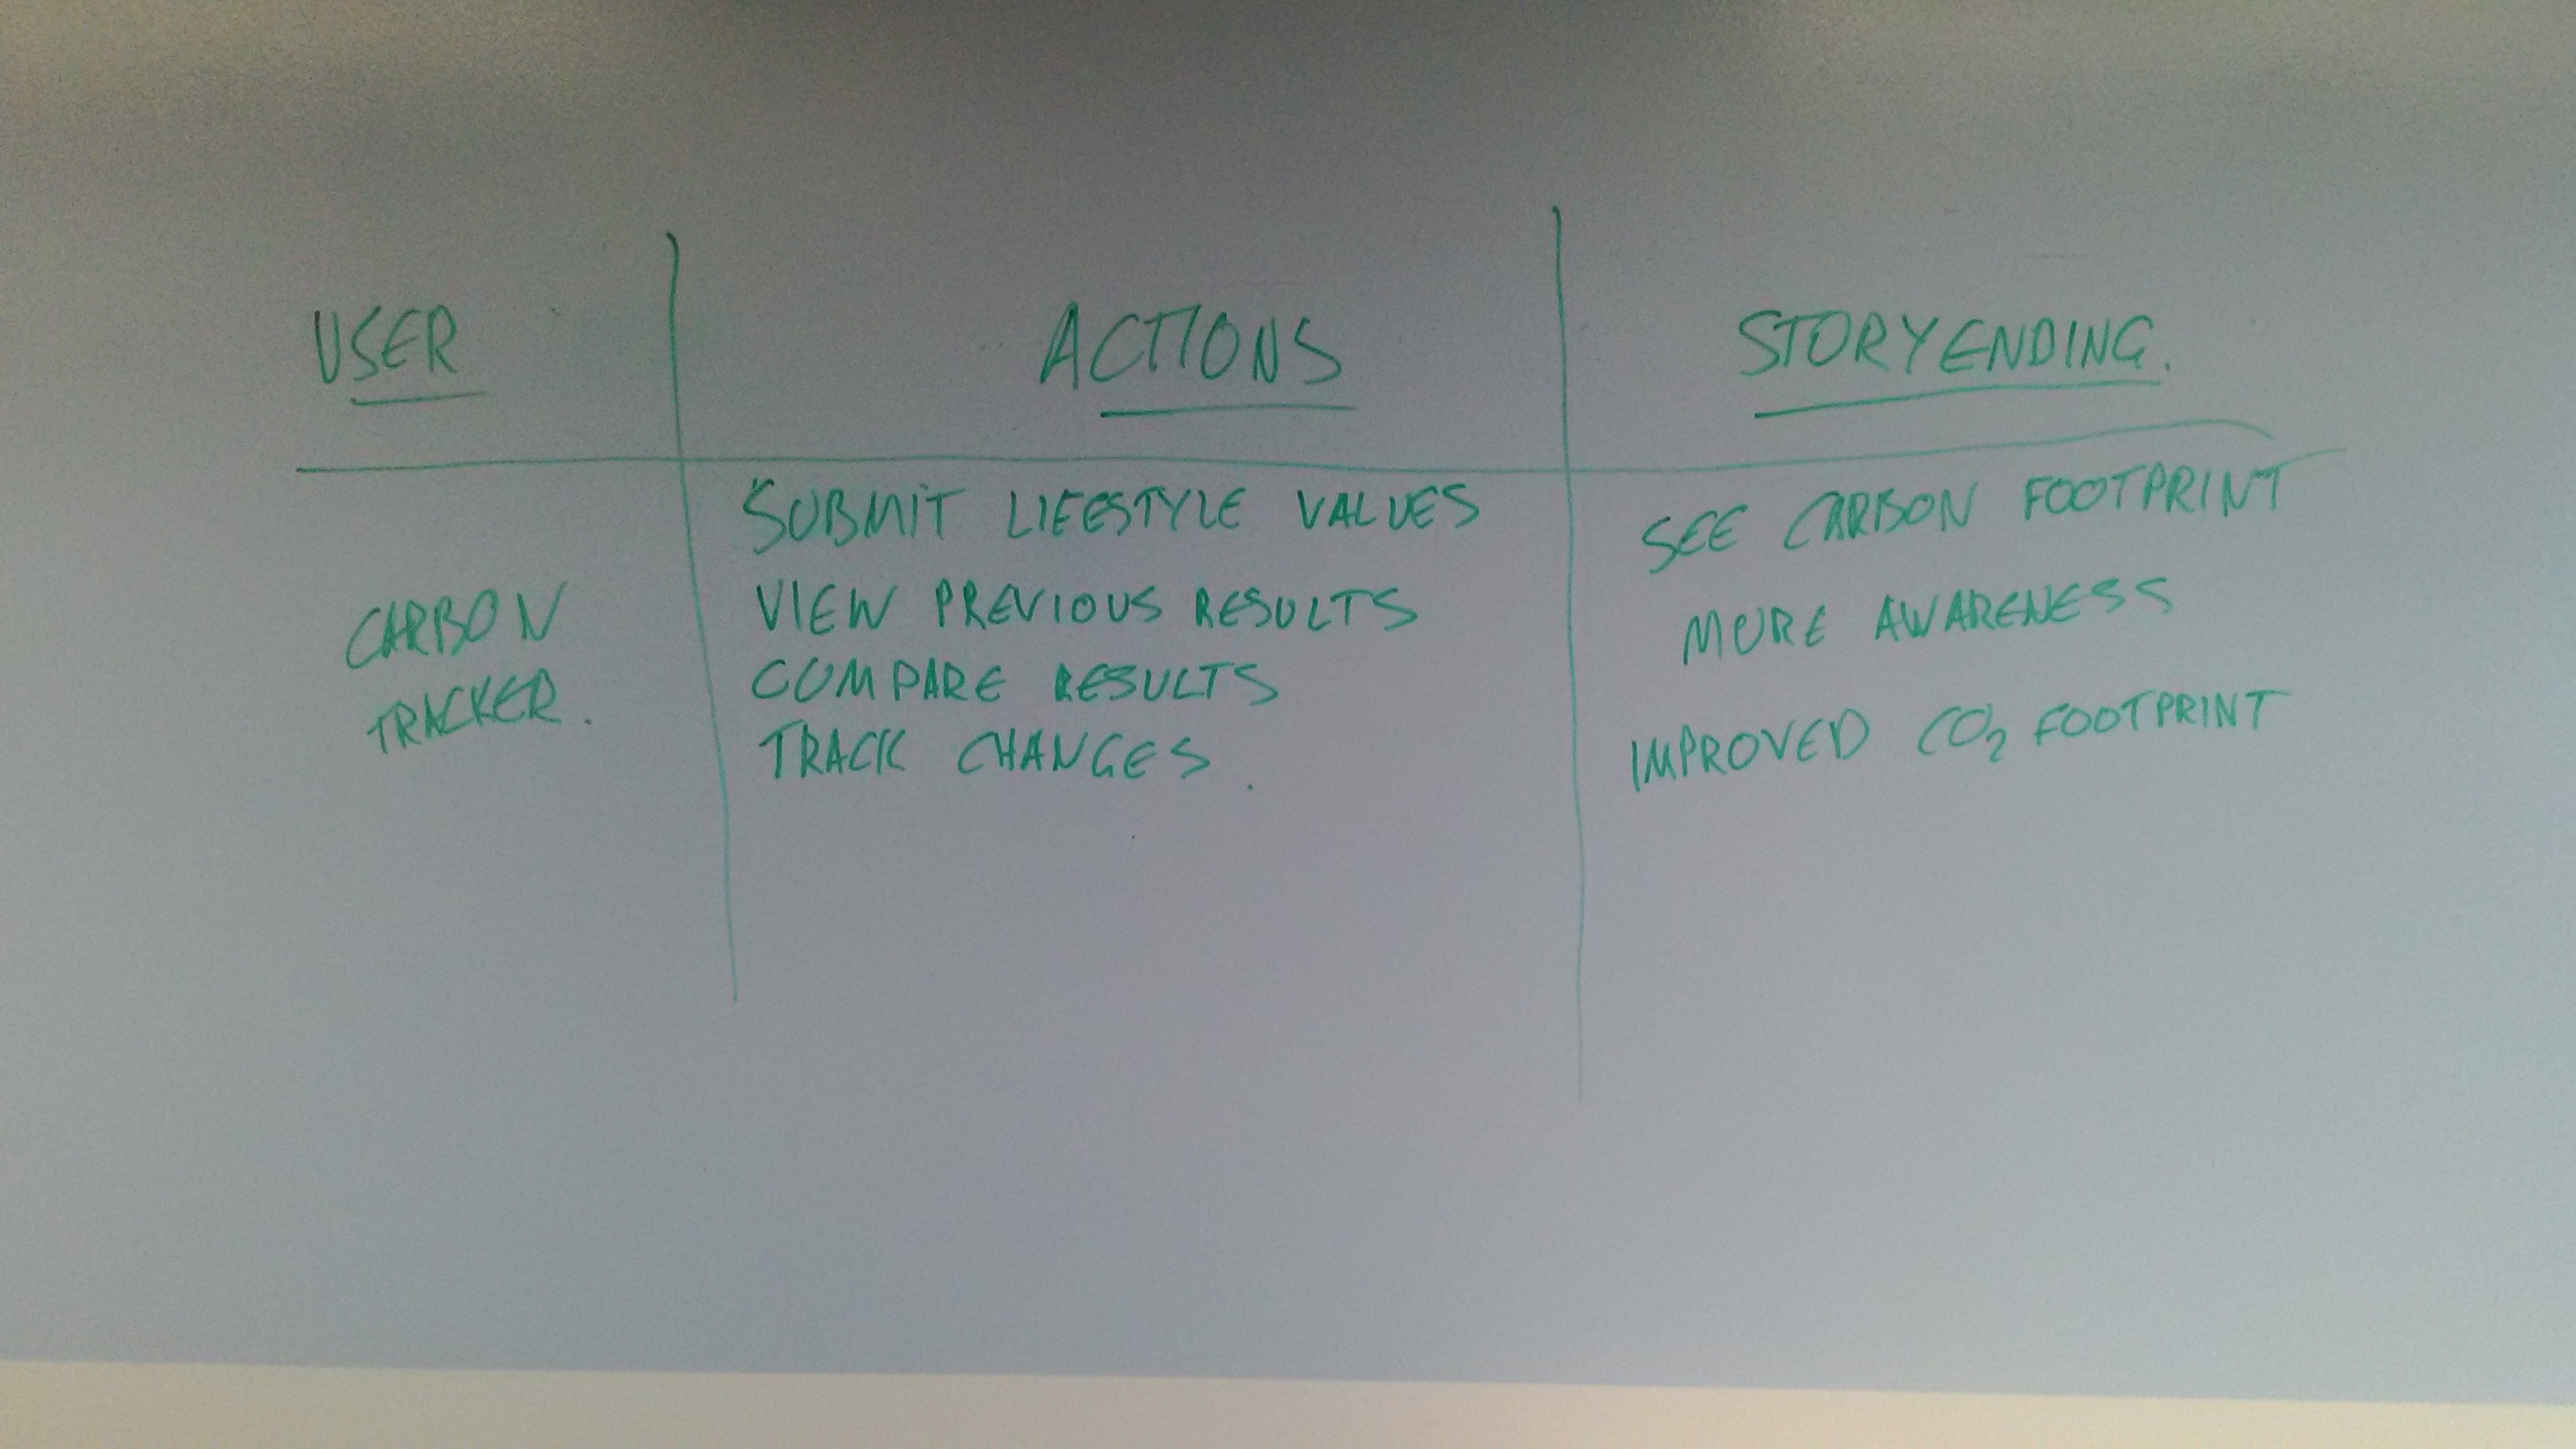 USER
ACTIONS
STORY ENDING.
CARBON
TRACKER.
SUBMIT LIFESTYLE VALUES
VIEW PREVIOUS RESULTS
COMPARE RESULTS
TRACK CHANGES.
SEE CARBON FOOTPRINT
MORE AWARENESS
IMPROVED CO₂ FOOTPRINT